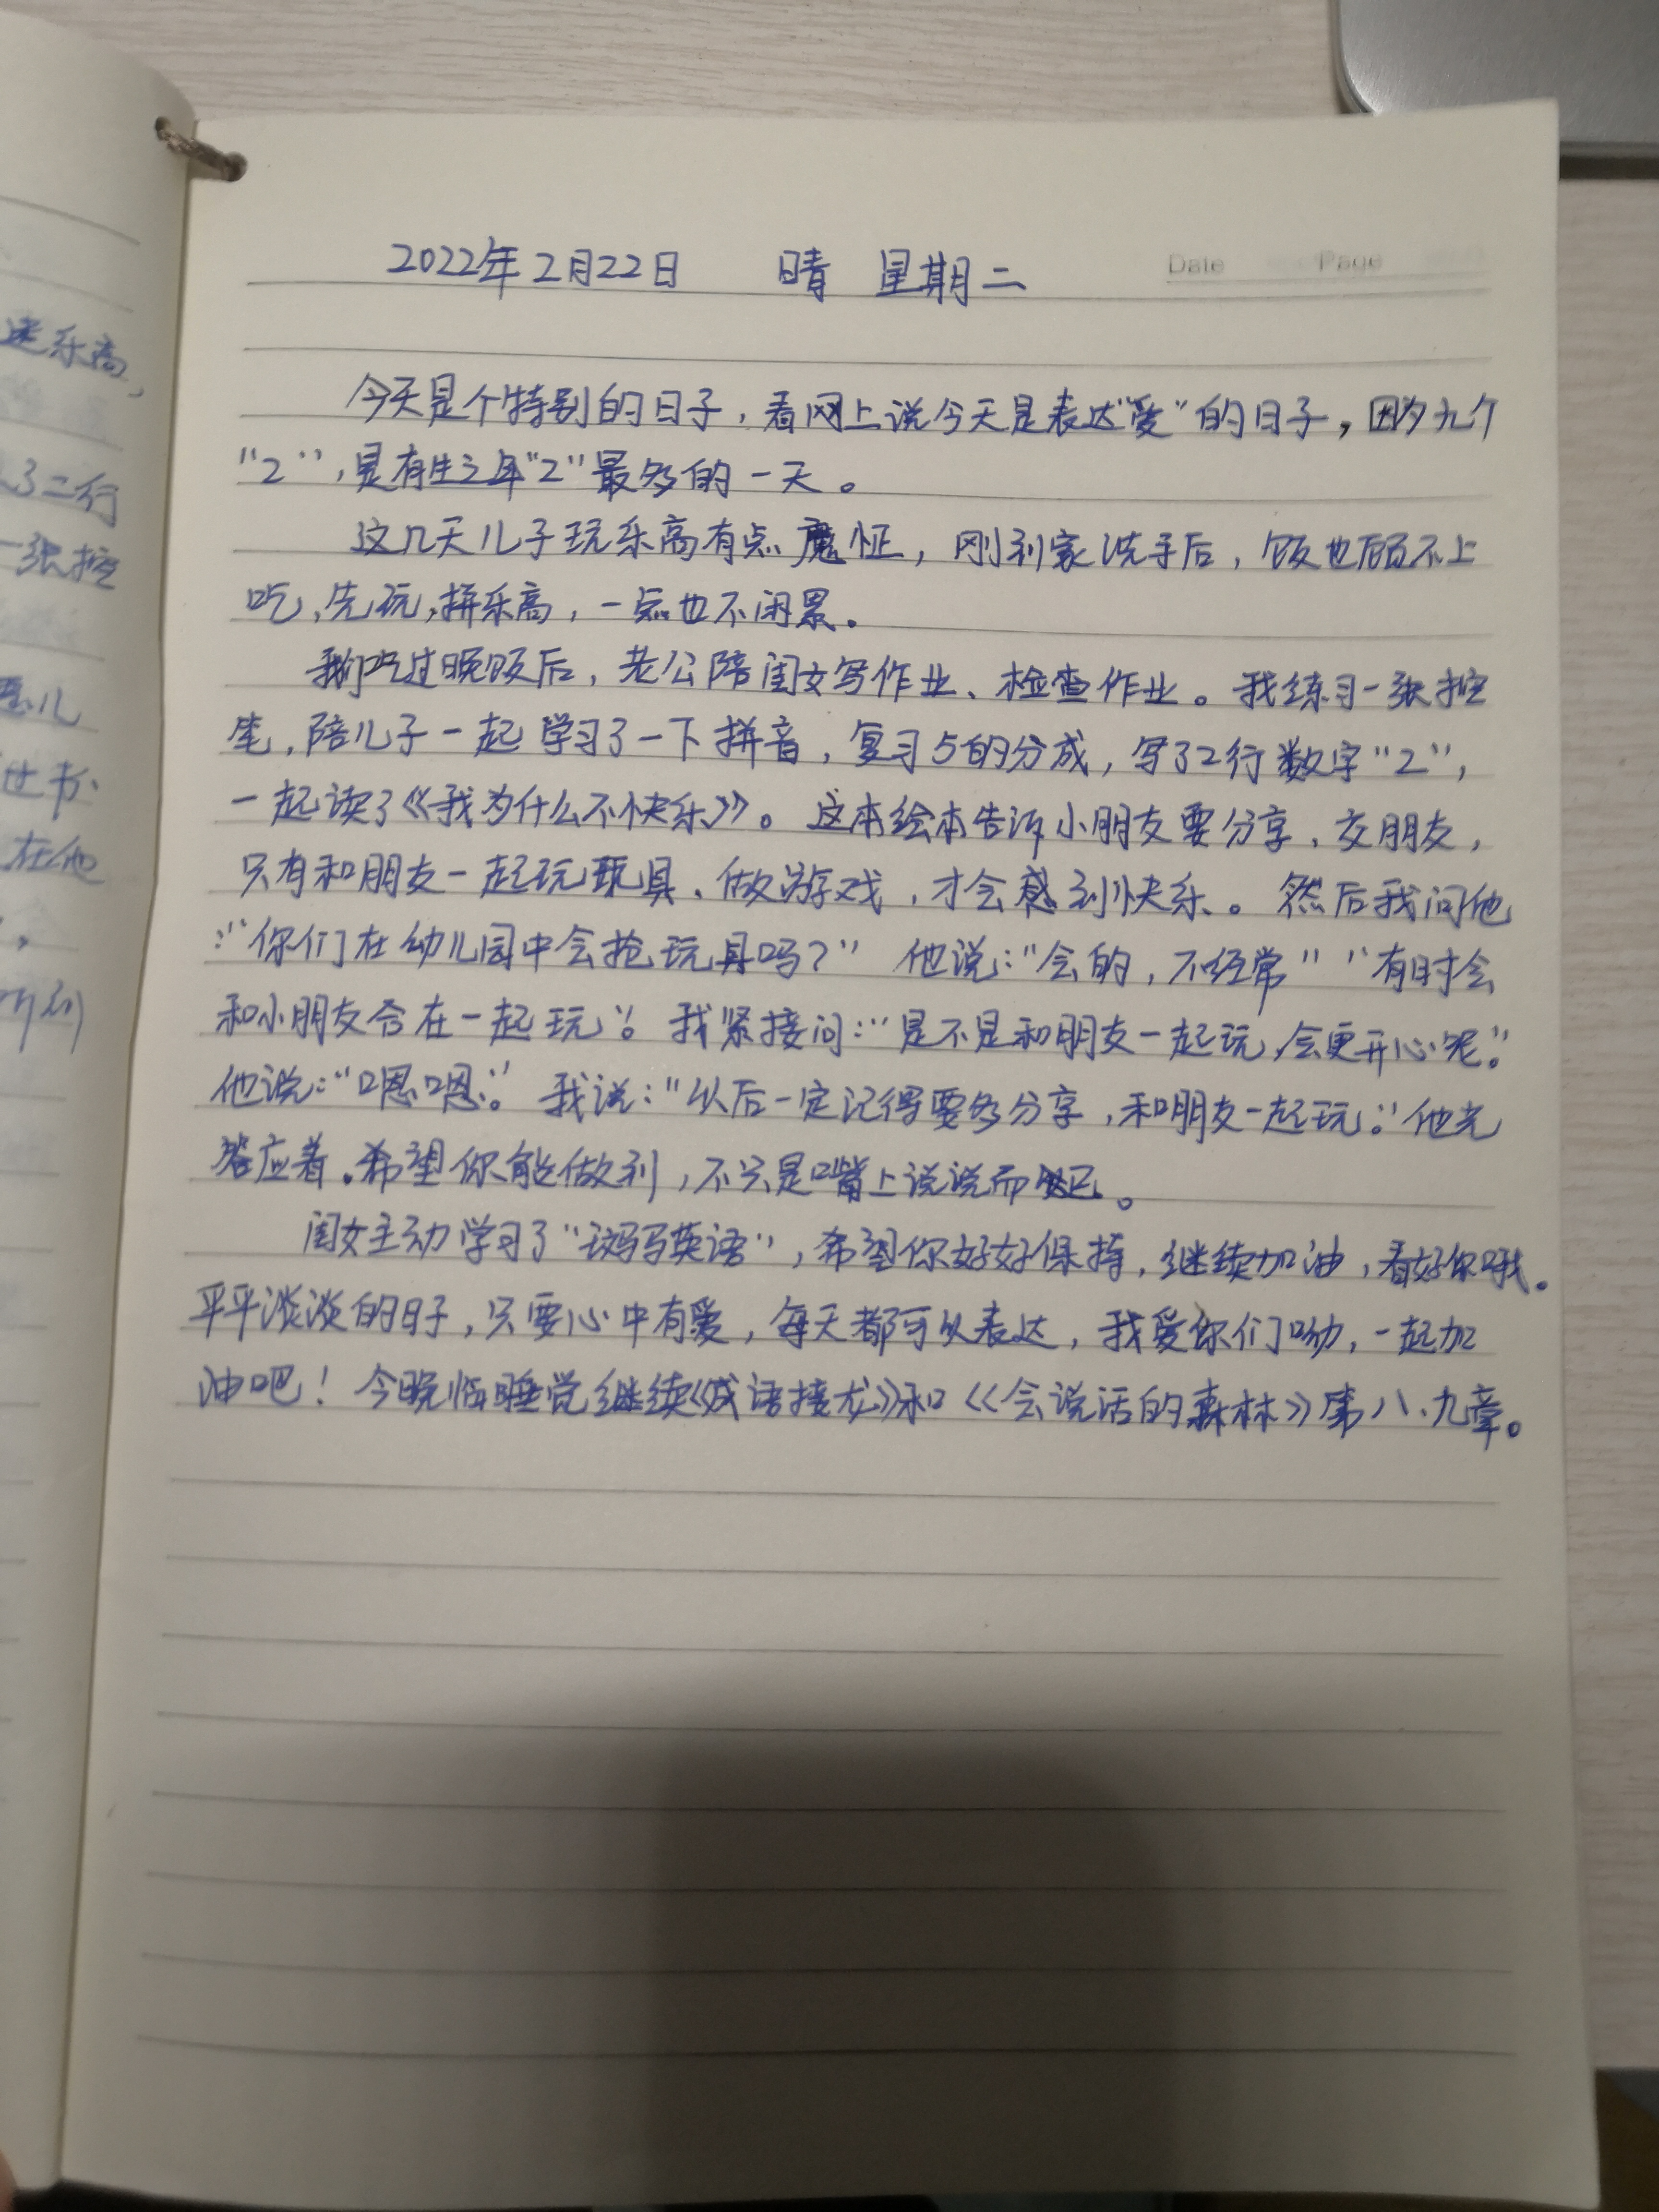 2022年2月22日 晴 星期二
Date Page
今天是个特别的日子，看网上说今天是表达“爱”的日子，因为九个
“2”，是有生之年“2”最多的一天。
这几天儿子玩乐高有点魔怔，刚到家洗手后，饭也顾不上
吃、先玩，拼乐高，一点也不闲累。
我们吃过晚饭后，老公陪闺女写作业、检查作业。我练习一张控
笔，陪儿子一起学习了一下拼音，复习5的分成，写了2行数字“2”，
一起读了《我为什么不快乐》。这本绘本告诉小朋友要分享、交朋友，
只有和朋友一起玩玩具、做游戏，才会感到快乐。然后我问他
：“你们在幼儿园中会抢玩具吗？” 他说：“会的，不经常” “有时会
和小朋友合在一起玩”。我紧接问：“是不是和朋友一起玩，会更开心呢。”
他说：“嗯嗯。” 我说：“以后一定记得要多分享，和朋友一起玩。”他光
答应着。希望你能做到，不只是嘴上说说而已。
闺女主动学习了“斑马英语”，希望你好好保持，继续加油，看好你哦。
平平淡淡的日子，只要心中有爱，每天都可以表达，我爱你们呦，一起加
油吧！今晚临睡觉继续《成语接龙》和《会说话的森林》第八、九章。
速乐高，
了二行
一张控
儿
世书
在他